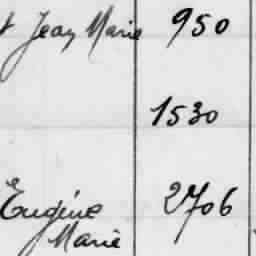 Jean Marie 950
1530
Eugène 2706
Marie